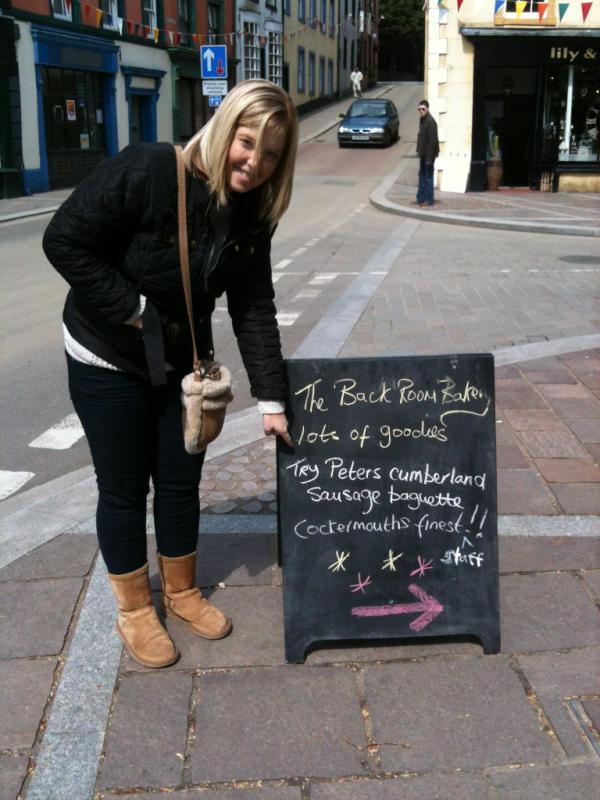 lily &
The Back Room Bakery
lots of goodies
Try Peters cumberland
Sausage baguette
Cockermouths finest!!
^ staff